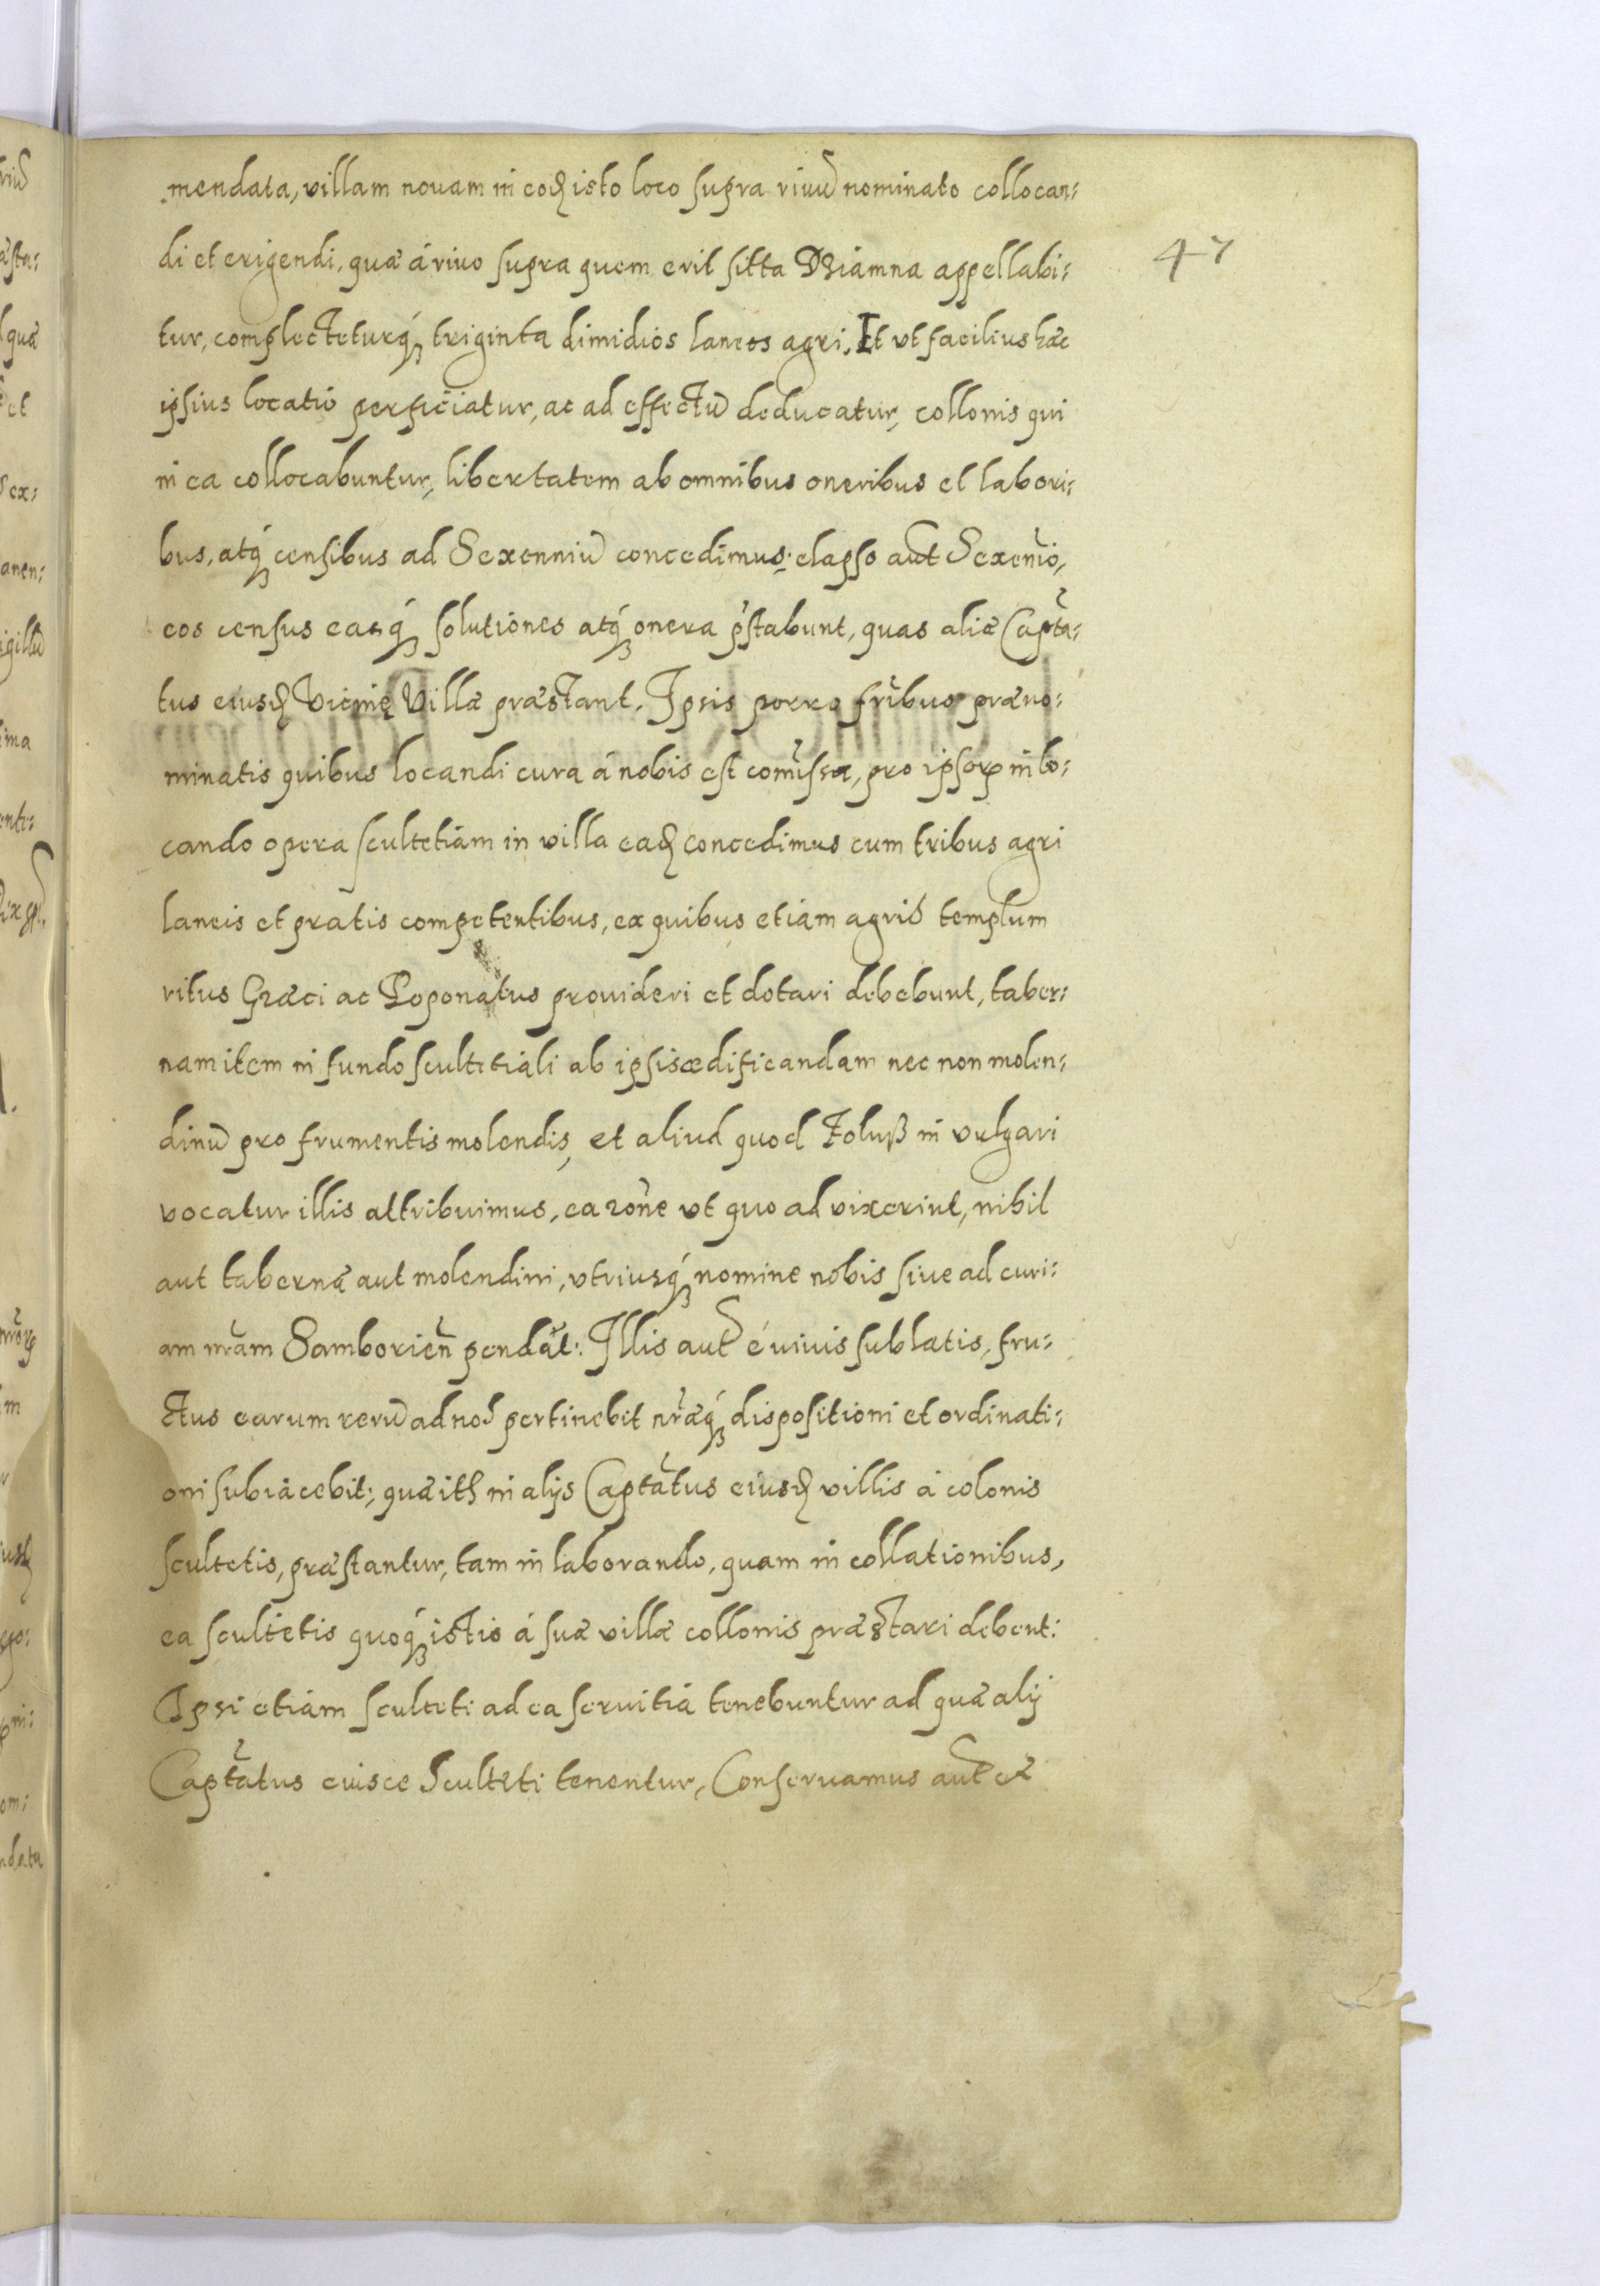 mendata, villam nouam in eoꝫ isto loco supra riuũ nominato collocan:
di et erigendi, quæ á riuo supra quem erit sitta Dniamna appellabi:
tur, complecteturq́ꝫ triginta dimidios laneos agri, Et vt facilius hæc
ipsius locatio perficiatur, ac ad effectũ deducatur, collonis qui
in ea collocabuntur, libertatem ab omnibus oneribus et labori:
bus, atq́ꝫ censibus ad Sexenniũ concedimus: elapso aut̃ Sexeñio,
eos census easq́ꝫ solutiones atq́ꝫ onera p̃stabunt, quas aliæ Capt̃a:
tus eiusdꝫ Vicinę Villæ præstant. Ipsis porro fr̃ibus præno:
minatis quibus locandi cura á nobis est com̃issa, pro ipsoꝝ in lo:
cando opera scultetiam in villa eadꝫ concedimus cum tribus agri
laneis et pratis competentibus, ex quibus etiam agris templum
ritus Græci ac Poponatus prouideri et dotari debebunt, taber:
nam item in fundo scultetiali ab ipsis ædificandam nec non molen:
dinũ pro frumentis molendis, et aliud quod Foluß in vulgari
vocatur illis attribuimus, ea rõne vt quo ad vixerint, nihil
aut tabernæ aut molendini, vtriusq́ꝫ nomine nobis siue ad curi:
am nr̃am Samborieñ pendãt: Illis aut̃ é viuis sublatis, fru:
ctus earum rerũ ad nos pertinebit nr̃æq́ꝫ dispositioni et ordinati:
oni subiacebit; quæ itꝫ in alijs Capt̃atus eiusdꝫ villis á colonis
scultetis, præstantur, tam in laborando, quam in collationibus,
ea scultetis quoq́ꝫ istis á suæ villæ collonis præstari debent:
Ipsi etiam sculteti ad ea seruitia tenebuntur ad quæ alij
Capt̃atus cuisce Sculteti tenentur, Conseruamus aut̃ ex
47